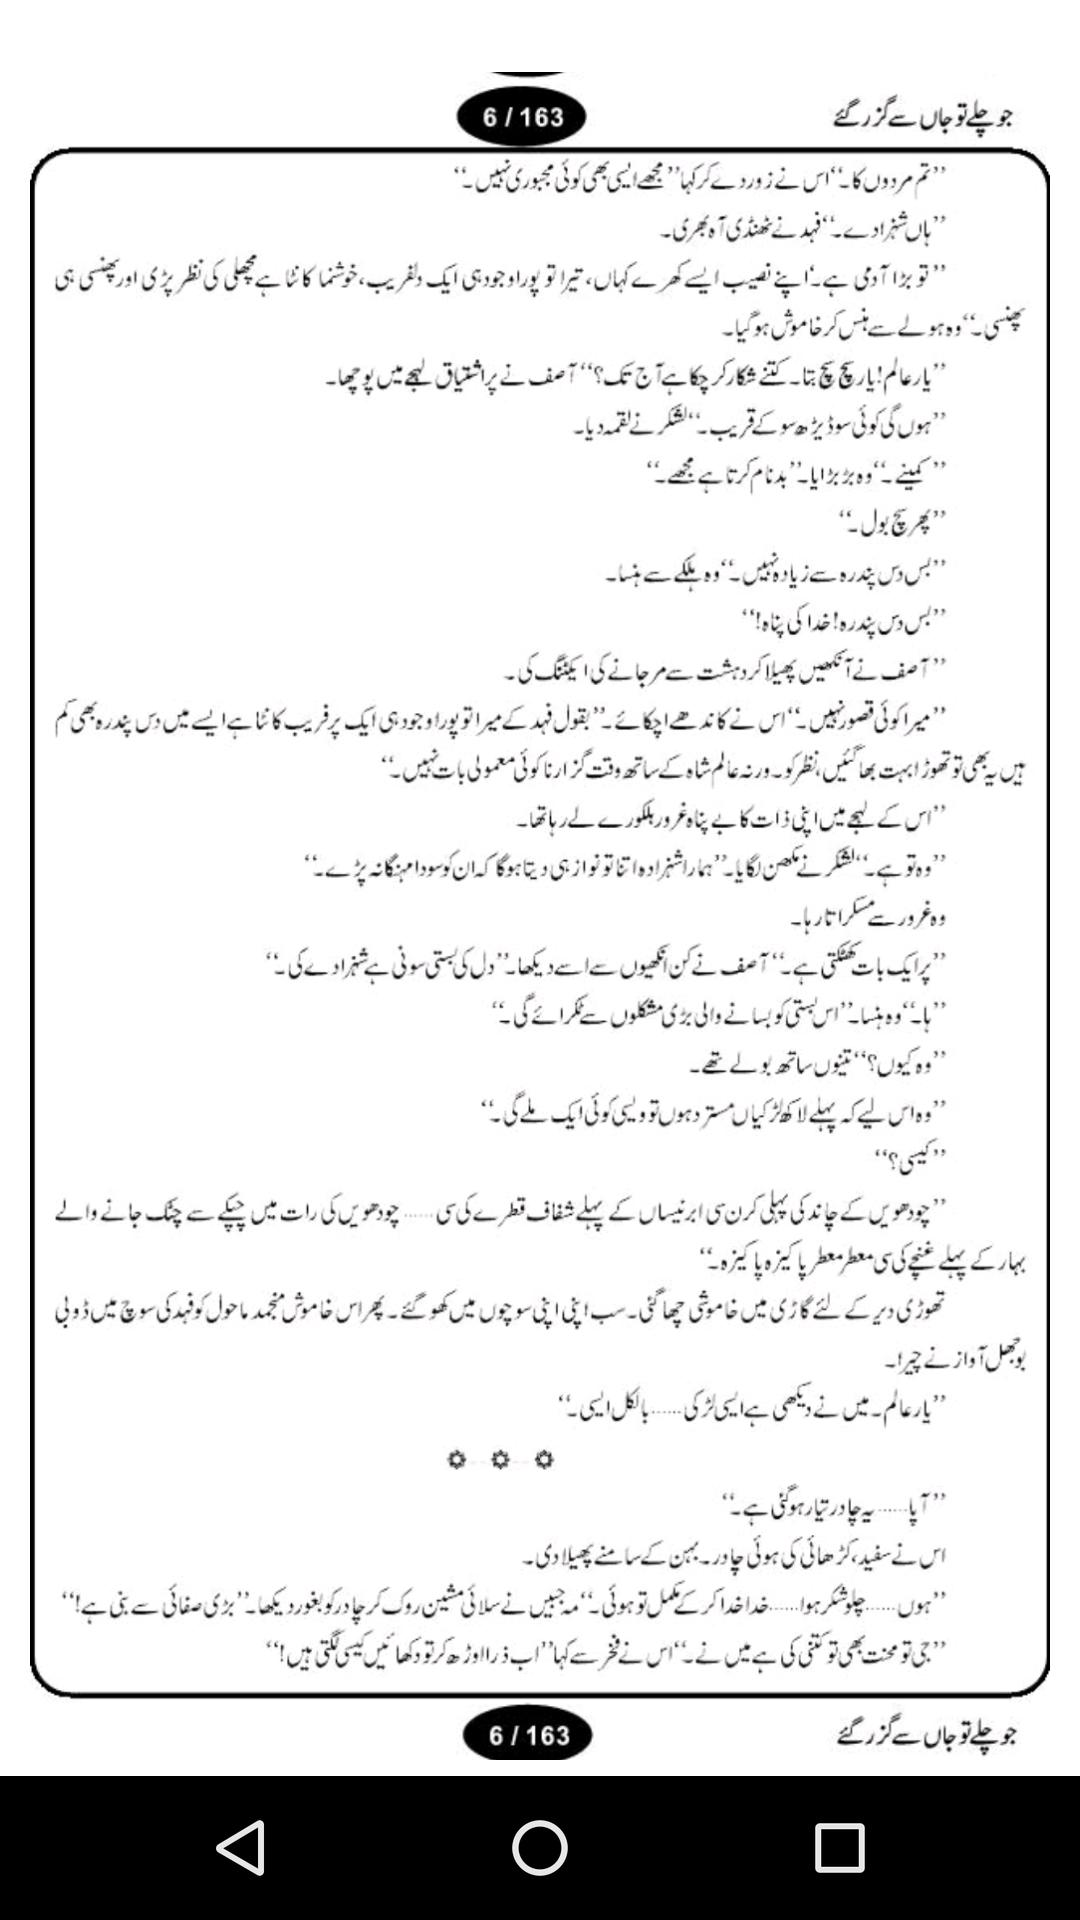 جو چلے تو جاں سے گزر گئے
6 / 163
’’تم مردوں کا۔‘‘ اس نے زور دے کر کہا ’’مجھے ایسی بھی کوئی مجبوری نہیں۔‘‘
’’ہاں شہزادے۔‘‘ فہد نے ٹھنڈی آہ بھری۔
’’تو بڑا آدمی ہے۔ اپنے نصیب ایسے کھرے کہاں، تیرا تو پورا وجود ہی ایک دلفریب، خوشنما کانٹا ہے مچھلی کی نظر پڑی اور پھنسی ہی
پھنسی۔‘‘ وہ ہولے سے ہنس کر خاموش ہو گیا۔
’’یار عالم! یار سچ سچ بتا۔ کتنے شکار کر چکا ہے آج تک؟‘‘ آصف نے پر اشتیاق لہجے میں پوچھا۔
’’ہوں گی کوئی سو ڈیڑھ سو کے قریب۔‘‘ لشکر نے لقمہ دیا۔
’’کمینے۔‘‘ وہ بڑبڑایا۔ ’’بدنام کرتا ہے مجھے۔‘‘
’’پھر سچ بول۔‘‘
’’بس دس پندرہ سے زیادہ نہیں۔‘‘ وہ ہلکے سے ہنسا۔
’’بس دس پندرہ! خدا کی پناہ!‘‘
’’آصف نے آنکھیں پھیلا کر دہشت سے مر جانے کی ایکٹنگ کی۔
’’میرا کوئی قصور نہیں۔‘‘ اس نے کاندھے اچکائے۔ ’’بقول فہد کے میرا تو پورا وجود ہی ایک پر فریب کانٹا ہے ایسے میں دس پندرہ بھی کم
ہیں یہ بھی تو تھوڑا بہت بھا گئیں، نظر کو۔ ورنہ عالم شاہ کے ساتھ وقت گزارنا کوئی معمولی بات نہیں۔‘‘
’’اس کے لہجے میں اپنی ذات کا بے پناہ غرور ہلکورے لے رہا تھا۔
’’وہ تو ہے۔‘‘ لشکر نے مکھن لگایا۔ ’’ہمارا شہزادہ اتنا تو نواز ہی دیتا ہو گا کہ ان کو سودا مہنگا نہ پڑے۔‘‘
وہ غرور سے مسکراتا رہا۔
’’پر ایک بات کھٹکتی ہے۔‘‘ آصف نے کن انکھیوں سے اسے دیکھا۔ ’’دل کی بستی سونی ہے شہزادے کی۔‘‘
’’ہا۔‘‘ وہ ہنسا۔ ’’اس بستی کو بسانے والی بڑی مشکلوں سے ٹکرائے گی۔‘‘
’’وہ کیوں؟‘‘ تینوں ساتھ بولے تھے۔
’’وہ اس لیے کہ پہلے لاکھ لڑکیاں مسترد ہوں تو ویسی کوئی ایک ملے گی۔‘‘
’’کیسی؟‘‘
’’چودھویں کے چاند کی پہلی کرن سی ابر نیساں کے پہلے شفاف قطرے کی سی ...... چودھویں کی رات میں چپکے سے چٹک جانے والے
بہار کے پہلے غنچے کی سی معطر معطر پاکیزہ پاکیزہ۔‘‘
تھوڑی دیر کے لئے گاڑی میں خاموشی چھا گئی۔ سب اپنی اپنی سوچوں میں کھو گئے۔ پھر اس خاموش منجمد ماحول کو فہد کی سوچ میں ڈوبی
بوجھل آواز نے چیرا۔
’’یار عالم۔ میں نے دیکھی ہے ایسی لڑکی ...... بالکل ایسی۔‘‘
’’آپا ...... یہ چادر تیار ہو گئی ہے۔‘‘
اس نے سفید، کڑھائی کی ہوئی چادر۔ بہن کے سامنے پھیلا دی۔
’’ہوں ...... چلو شکر ہوا ...... خدا خدا کر کے مکمل تو ہوئی۔‘‘ مہ جبیں نے سلائی مشین روک کر چادر کو بغور دیکھا۔ ’’بڑی صفائی سے بنی ہے!‘‘
’’جی تو محنت بھی تو کتنی کی ہے میں نے۔‘‘ اس نے فخر سے کہا ’’اب ذرا اوڑھ کر تو دکھائیں کیسی لگتی ہیں!‘‘
6 / 163
جو چلے تو جاں سے گزر گئے